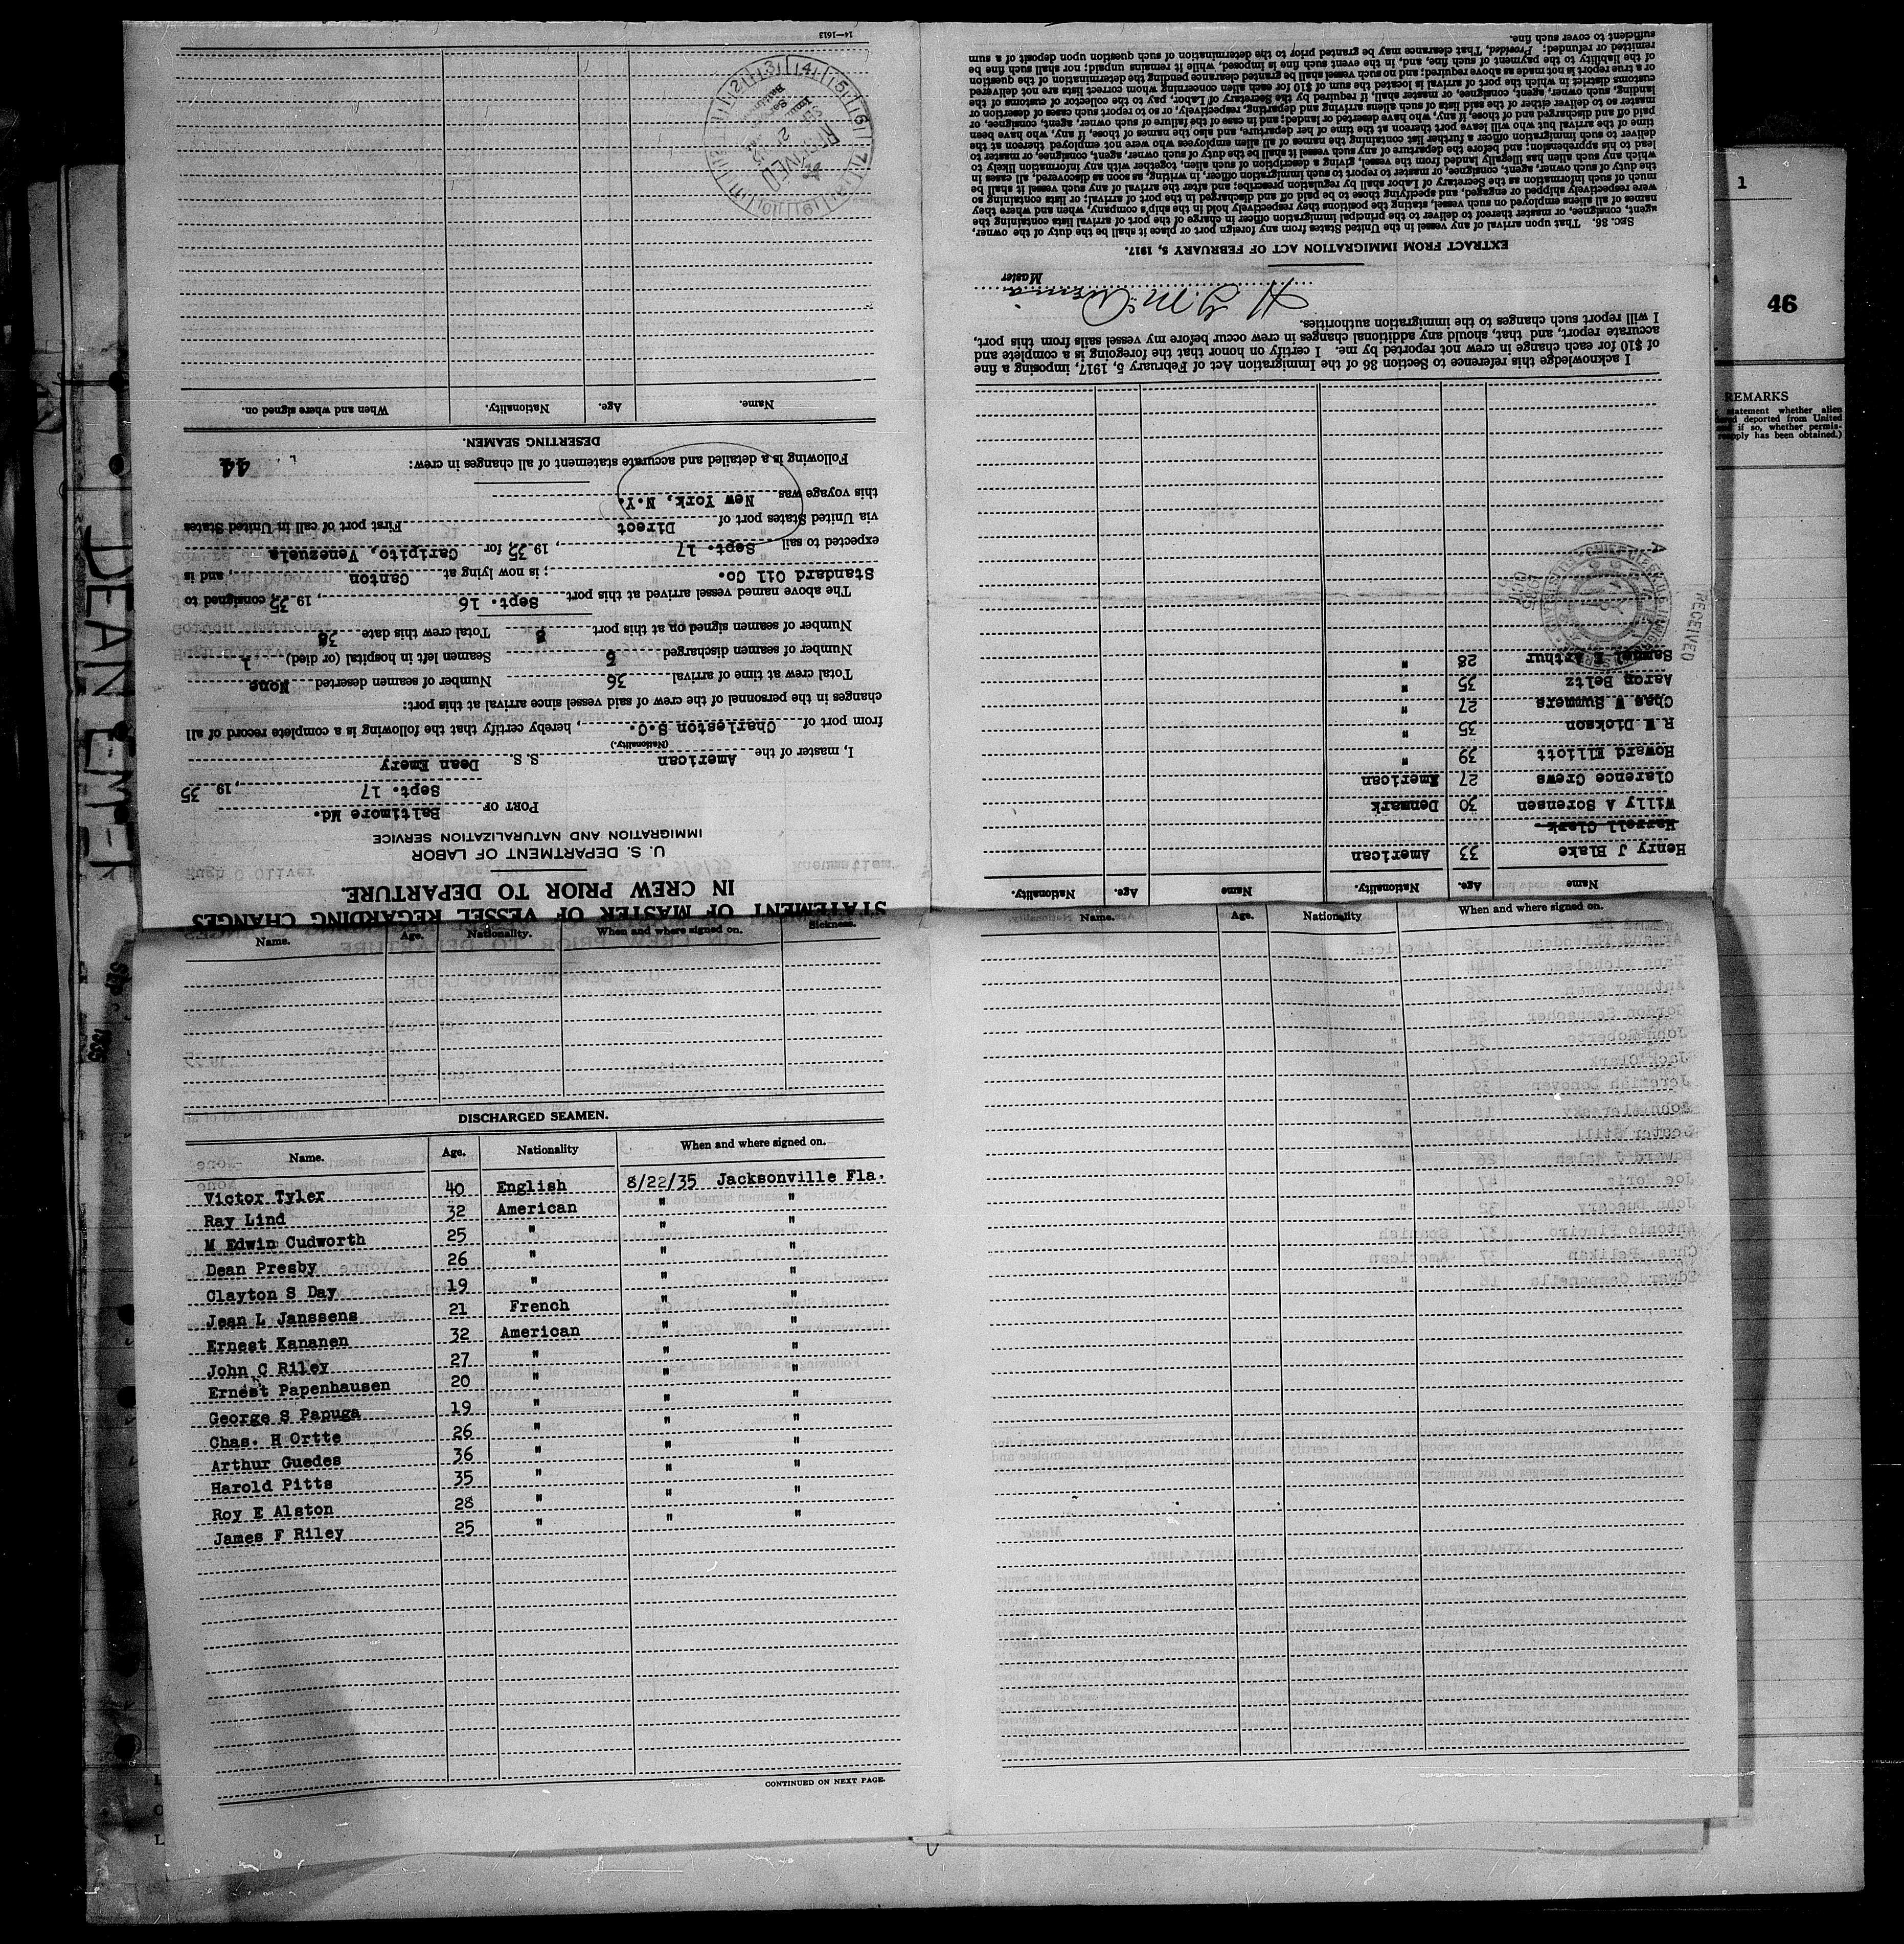 STATEMENT OF MASTER OF VESSEL REGARDING CHANGES
IN CREW PRIOR TO DEPARTURE.
U. S. DEPARTMENT OF LABOR
IMMIGRATION AND NATURALIZATION SERVICE
PORT OF Baltimore Md.
Sept. 17, 19 35
I, master of the American S. S. Dean Emery
(Nationality.)
from port of Charleston S.C., hereby certify that the following is a complete record of all
changes in the personnel of the crew of said vessel since arrival at this port:
Total crew at time of arrival 36 Number of seamen deserted None
Number of seamen discharged 6 Seamen left in hospital (or died) 1
Number of seamen signed on at this port Total crew this date
The above named vessel arrived at this port Sept. 16, 19 35, consigned to
Standard Oil Co.; is now lying at Canton, and is
expected to sail Sept. 17, 19 35, for Caripito, Venezuela
via United States port of Direct First port of call in United States
this voyage was New York, N.Y.
Following is a detailed and accurate statement of all changes in crew:
44
DESERTING SEAMEN.
Name. Age. Nationality. When and where signed on.
ARRIVED
14—1613
Name Age. Nationality. Name Age. Nationality.
Henry J Blake 33 American
Harrell Clark
Willy A Sorensen 30 Denmark
Clarence Crews 27 American
Howard Elliott 39 "
R W Dickson 35 "
Chas W Summers 27 "
Aaron Beltz 35 "
Samuel E Arthur 28 "
RECEIVED
I acknowledge this reference to Section 36 of the Immigration Act of February 5, 1917, imposing a fine
of $10 for each change in crew not reported by me. I certify on honor that the foregoing is a complete and
accurate report, and that, should any additional changes in crew occur before my vessel sails from this port,
I will report such changes to the immigration authorities.
Master
EXTRACT FROM IMMIGRATION ACT OF FEBRUARY 5, 1917.
SEC. 36. That upon arrival of any vessel in the United States from any foreign port or place it shall be the duty of the owner,
agent, consignee, or master thereof to deliver to the principal immigration officer in charge of the port of arrival lists containing the
names of all aliens employed on such vessel, stating the positions they respectively hold in the ship's company, when and where they
were respectively shipped or engaged, and specifying those to be paid off and discharged in the port of arrival; or lists containing so
much of such information as the Secretary of Labor shall by regulation prescribe; and after the arrival of any such vessel it shall be
the duty of such owner, agent, consignee, or master to report to such immigration officer, in writing, as soon as discovered, all cases in
which any such alien has illegally landed from the vessel, giving a description of such alien, together with any information likely to
lead to his apprehension; and before the departure of any such vessel it shall be the duty of such owner, agent, consignee, or master to
deliver to such immigration officer a further list containing the names of all alien employees who were not employed thereon at the
time of the arrival but who will leave port thereon at the time of her departure, and also the names of those, if any, who have been
paid off and discharged and of those, if any, who have deserted or landed; and in case of the failure of such owner, agent, consignee, or
master so to deliver either of the said lists of such aliens arriving and departing, respectively, or so to report such cases of desertion or
landing, such owner, agent, consignee, or master, shall, if required by the Secretary of Labor, pay to the collector of customs of the
customs district in which the port of arrival is located the sum of $10 for each alien concerning whom correct lists are not delivered
or a true report is not made as above required; and no such vessel shall be granted clearance pending the determination of the question
of the liability to the payment of such fine, and, in the event such fine is imposed, while it remains unpaid; nor shall such fine be
remitted or refunded; Provided, That clearance may be granted prior to the determination of such question upon deposit of a sum
sufficient to cover such fine.
Name. Age. Nationality. When and where signed on. Sickness.
DISCHARGED SEAMEN.
Name. Age. Nationality When and where signed on.
Victor Tyler 40 English 8/22/35 Jacksonville Fla.
Ray Lind 32 American " "
M Edwin Cudworth 25 " " "
Dean Presby 26 " " "
Clayton S Day 19 " " "
Jean L Janssens 21 French " "
Ernest Kananen 32 American " "
John C Riley 27 " " "
Ernest Papenhausen 20 " " "
George S Papuga 19 " " "
Chas. H Ortte 26 " " "
Arthur Guedes 36 " " "
Harold Pitts 35 " " "
Roy E Alston 28 " " "
James F Riley 25 " " "
CONTINUED ON NEXT PAGE.
Name. Age. Nationality When and where signed on.
1
46
REMARKS
statement whether alien
deported from United
if so, whether permis-
reapply has been obtained.)
DEAN EMERY